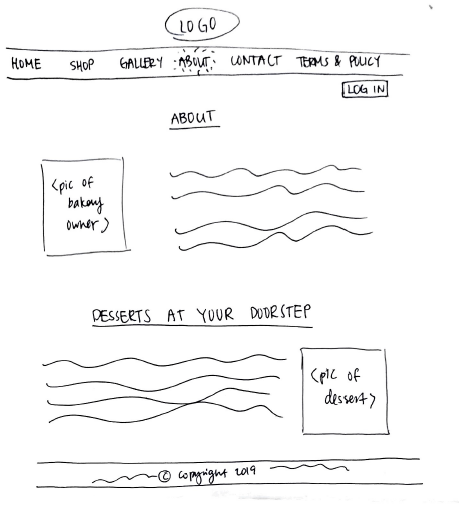 LOGO
HOME SHOP GALLERY ABOUT CONTACT TERMS & POLICY
LOG IN
ABOUT
<pic of
bakery
owner>
DESSERTS AT YOUR DOORSTEP
<pic of
dessert>
© copyright 2019